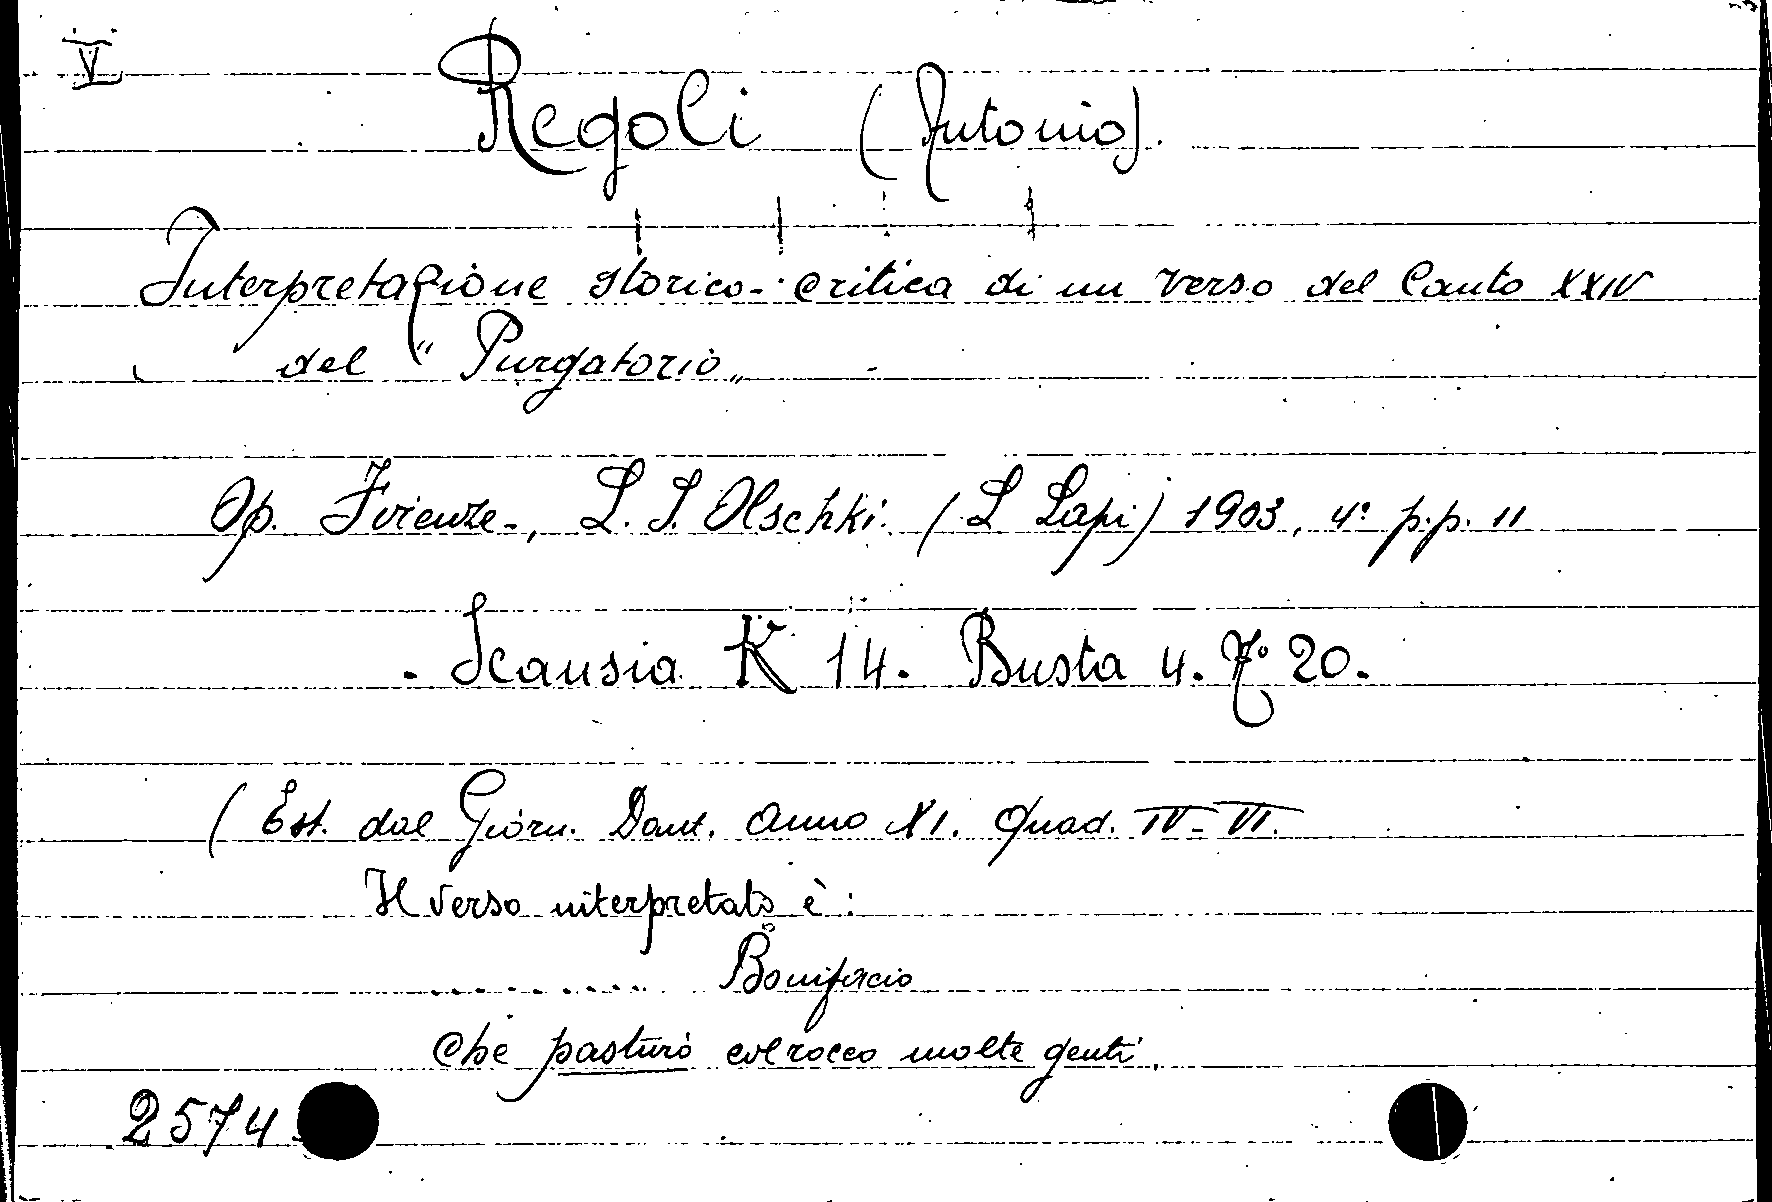 V
Regoli (Antonio).
Interpretazione storico-critica di un verso del Canto XXIV
del "Purgatorio„
Op. Firenze-, L. S. Olschki. (L Lapi) 1903, 4° p.p. 11
. Scansia K 14. Busta 4. F° 20.
(Est. dal Giorn. Dant. Anno XI. Quad. IV-VI.
Il verso interpretato è:
.......... Bonifacio
Che pasturò col rocco molte genti.
2574